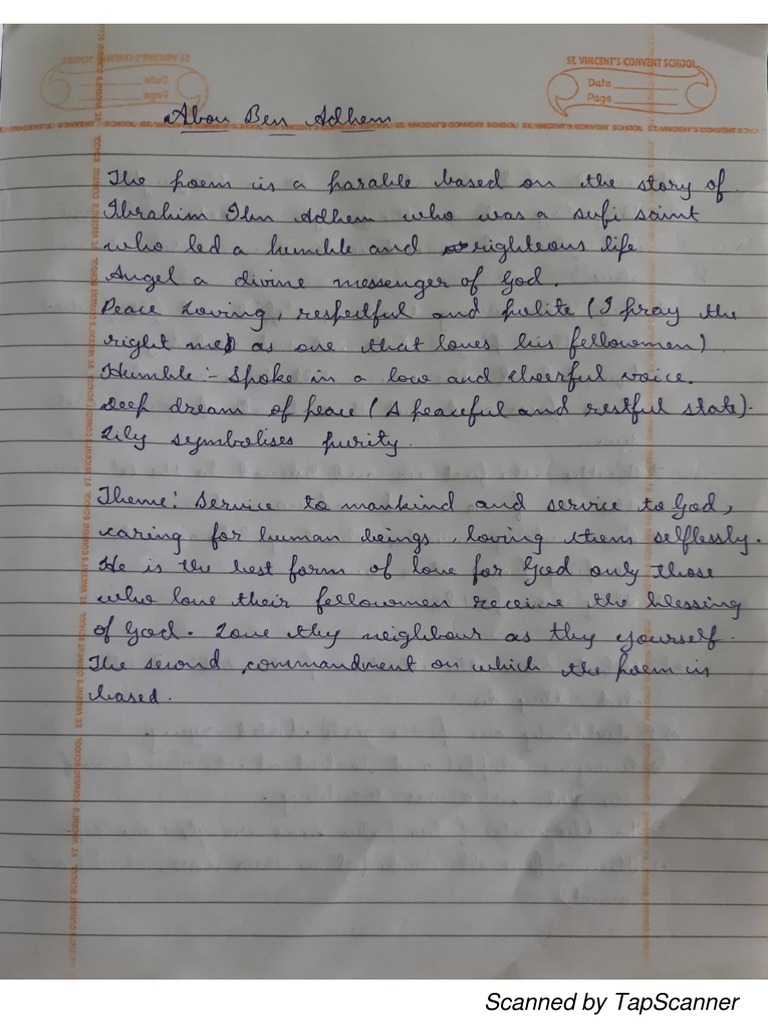 ST. VINCENT'S CONVENT SCHOOL
Date
Page
Abou Ben Adhem
The poem is a parable based on the story of
Ibrahim Ibn Adhem who was a sufi saint
who led a humble and righteous life
Angel a divine messenger of God.
Peace Loving, respectful and polite (I pray the
right me as one that loves his fellowmen)
Humble :- Spoke in a low and cheerful voice.
Deep dream of peace (A peaceful and restful state).
Lily symbolises purity.
Theme: Service to mankind and service to God,
caring for human beings, loving them selflessly.
He is the best form of love for God only those
who love their fellowmen receive the blessing
of God. Love thy neighbour as thy yourself.
The second commandment on which the poem is
based.
Scanned by TapScanner